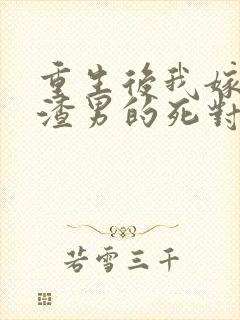 重生後我嫁
渣男的死對
若雪三千